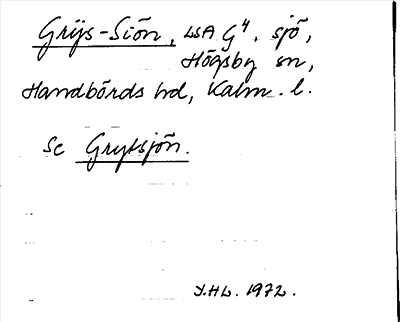 Grijs-Siön, LSA G4. sjö,
Högsby sn,
Handbörds hd, Kalm. l.
Se Grytsjön.
J.HL. 1972.